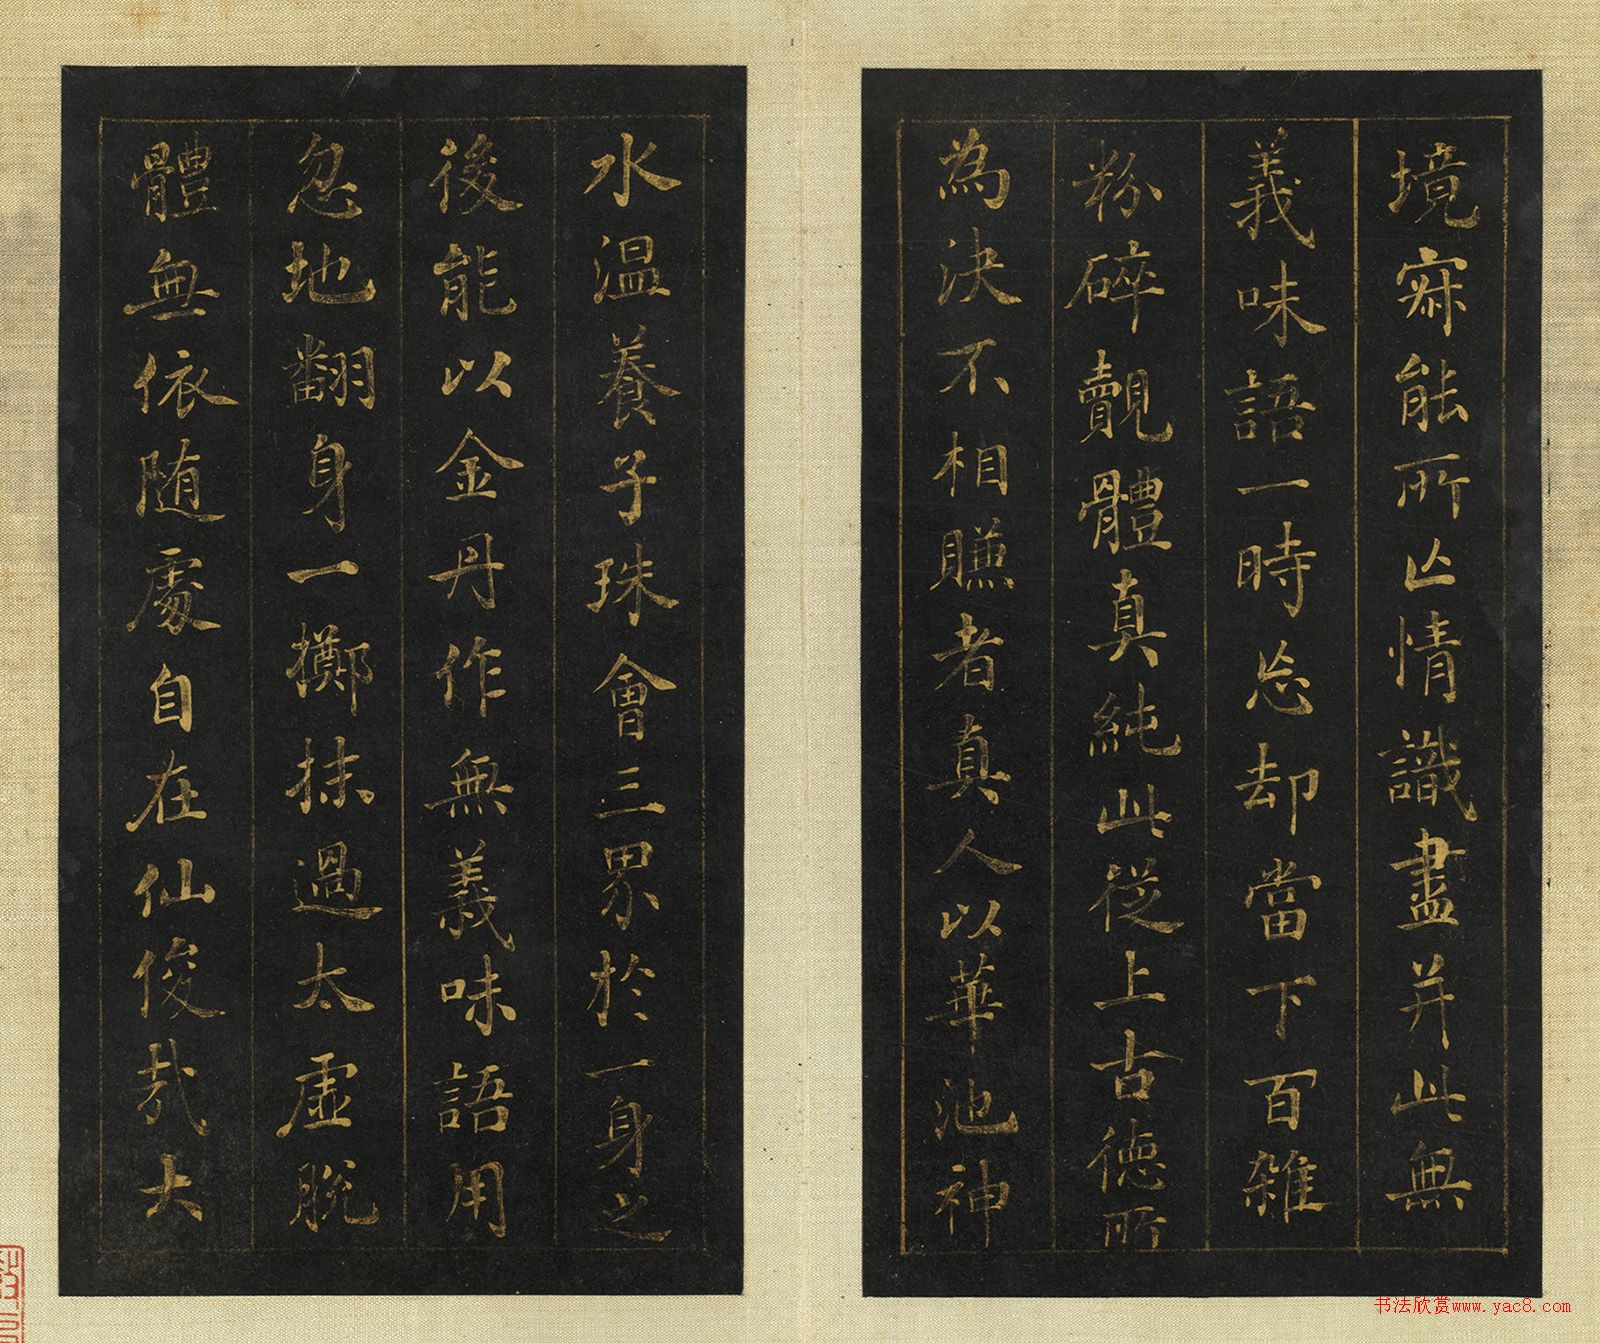 境寂能所亡情識盡并此無
義味語一時忘却當下百雜
粉碎覿體真純此從上古德所
為決不相賺者真人以華池神
水溫養子珠會三界於一身之
後能以金丹作無義味語用
忽地翻身一擲抹過太虛脫
體無依随處自在仙俊哉大
书法欣赏www.yac8.com